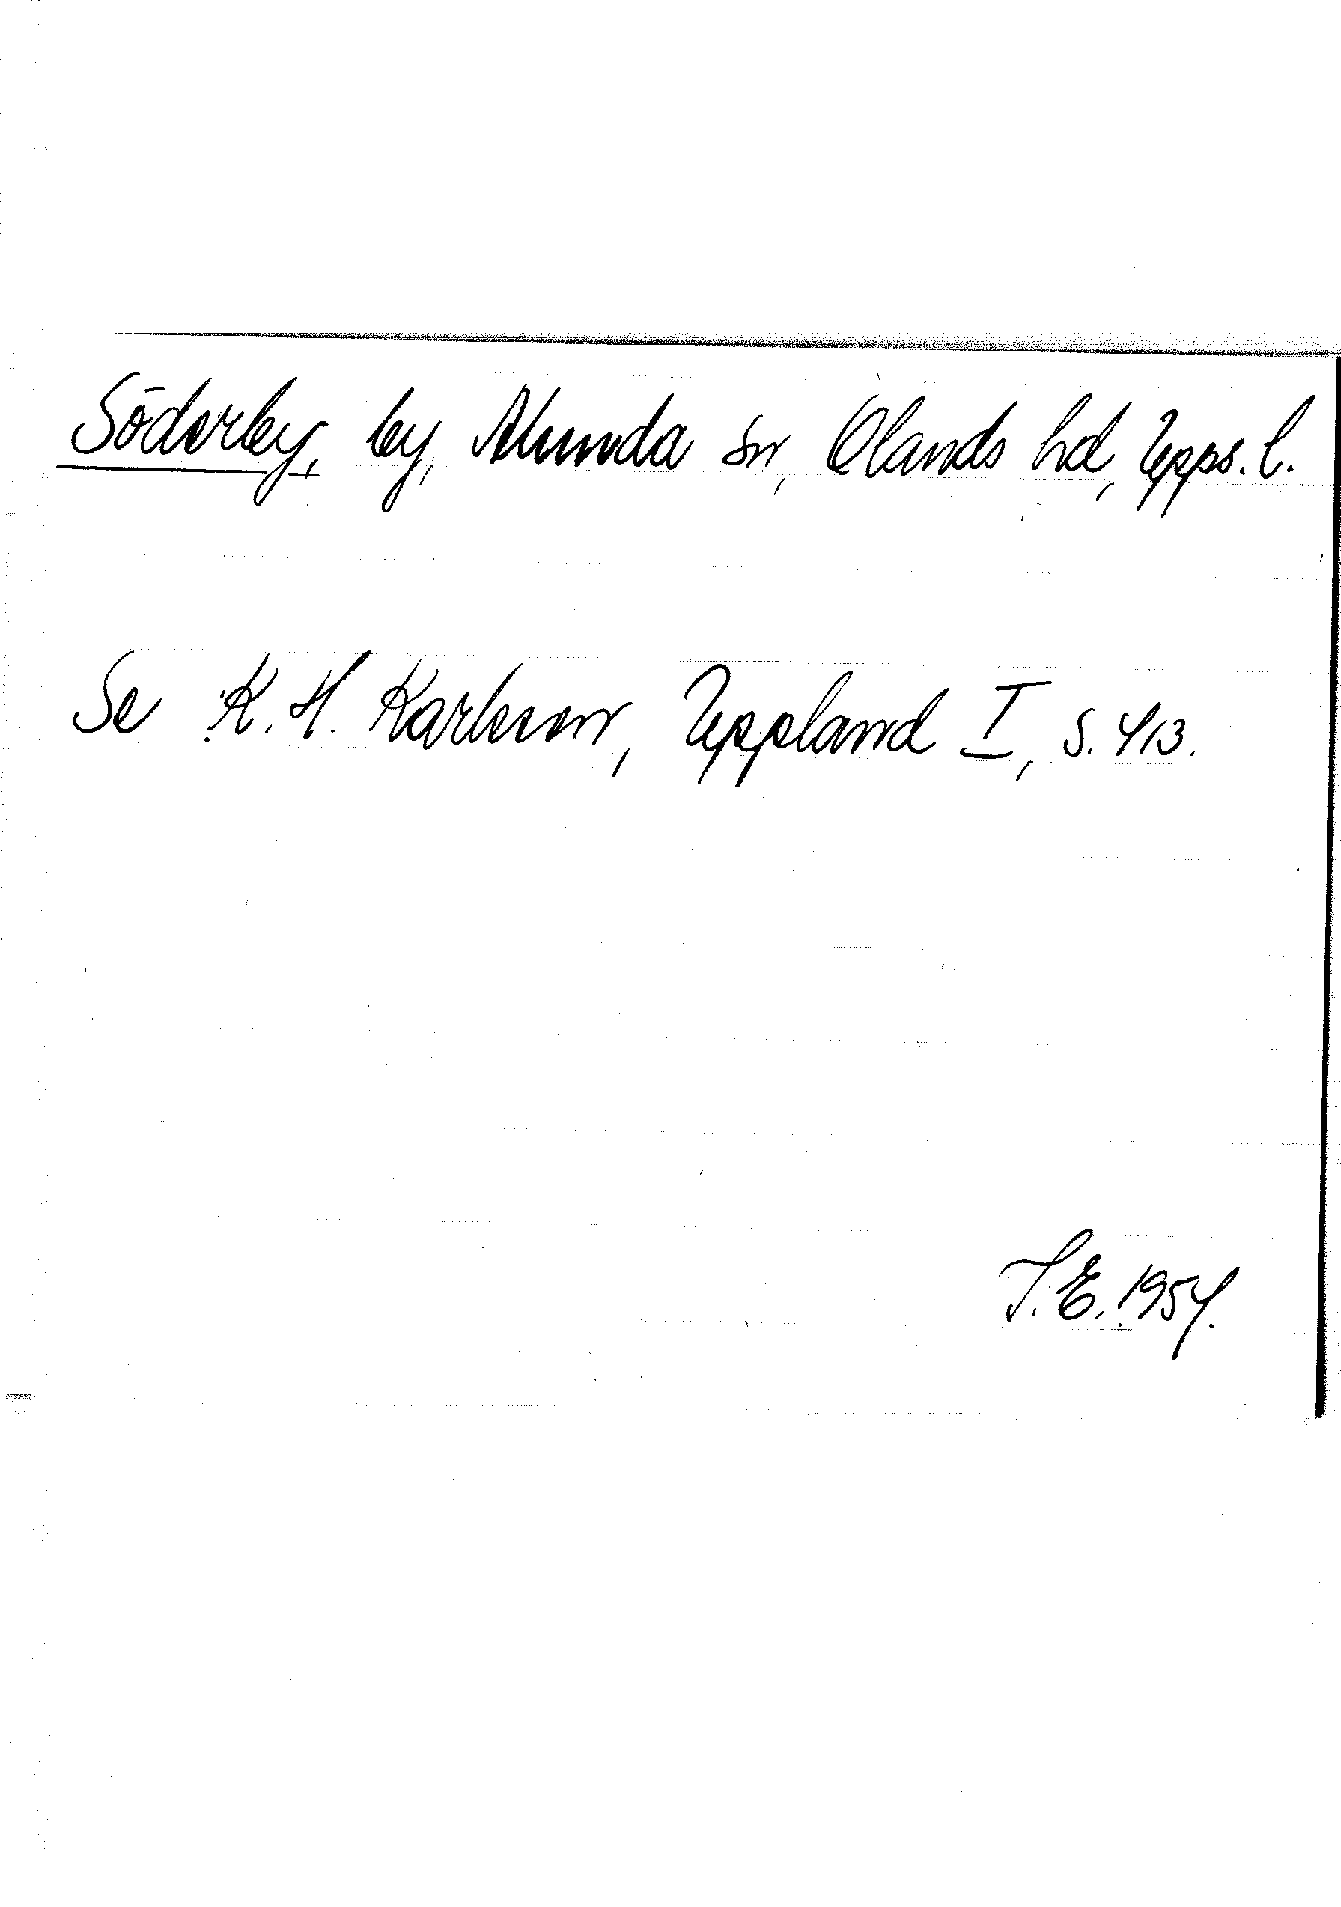 Söderby, by, Alunda sn, Olands hd, Upps. l.
Se K. H. Karlsson, Uppland I, s. 413.
I. E. 1954.